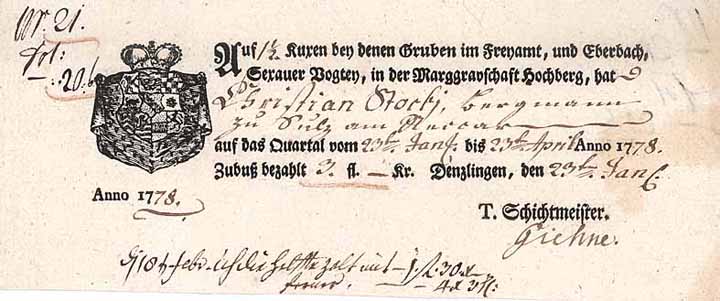 Nr. 21.
fol:
20. b
Auf 1½ Kuxen bey denen Gruben im Freyamt, und Eberbach,
Sexauer Vogtey, in der Marggravschaft Hochberg, hat
Christian Stocky, Bergmann
zu Sulz am Neccar
auf das Quartal vom 23ten Jan. bis 23ten April Anno 1778.
Zubuß bezahlt 3. fl. — Kr. Denzlingen, den 23ten Jan.
Anno 1778.
T. Schichtmeister.
Giehne.
d 18t febr. die helfte zalt mit 1 f. 30 x